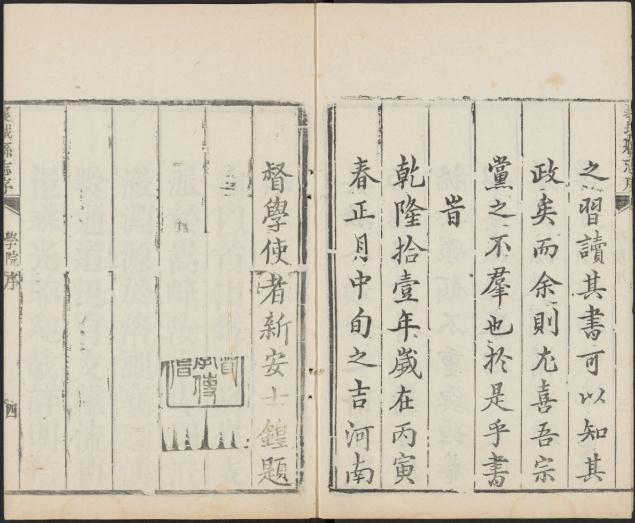 之習讀其書可以知其
政矣而余則尤喜吾宗
黨之不羣也於是乎書
旹
乾隆拾壹年歲在丙寅
春正月中旬之吉河南
督學使者新安士鍠題
縣志序
學院序
四